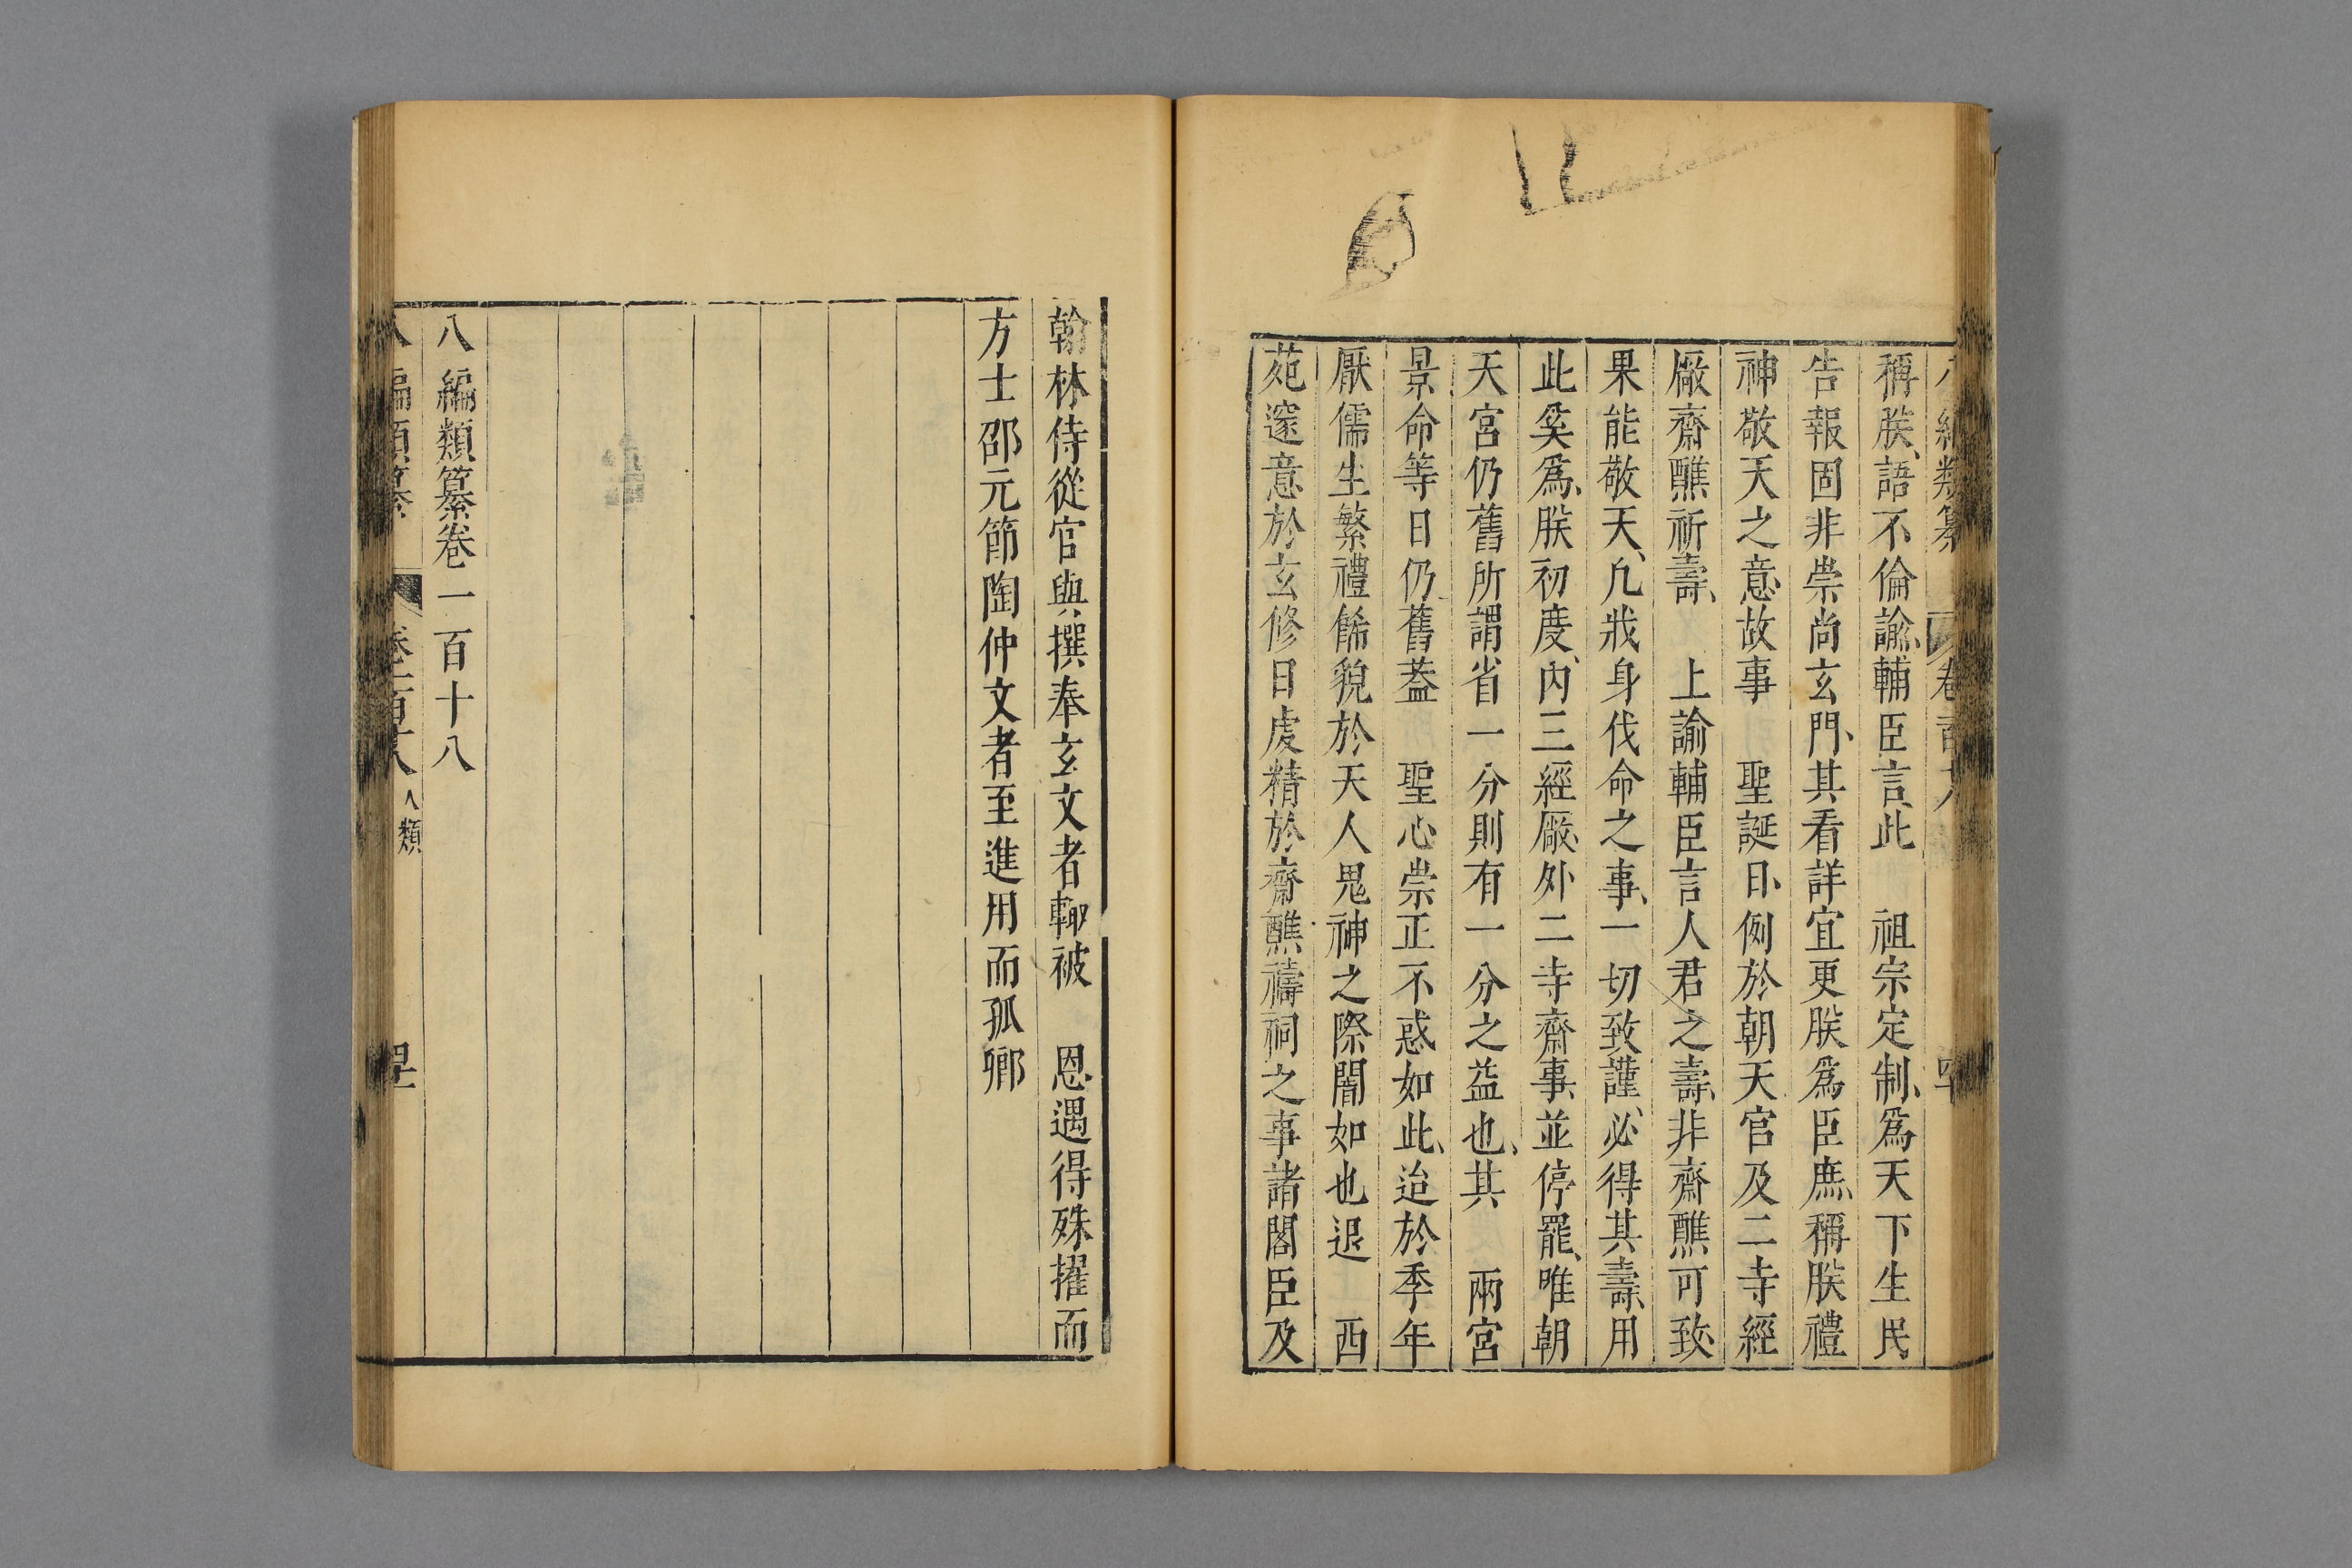 稱朕、語不倫諭、輔臣言、此　祖宗定制、爲天下生民
告報固非崇尚玄門、其看詳宜更朕爲臣庶、稱朕禮
神敬天之意、故事　聖誕日、例於朝天宫及二寺經
厰齋醮祈壽、　上諭輔臣言人君之壽、非齋醮可致、
果能敬天、凡戕身伐命之事、一切致謹、必得其壽、用
此奚爲、朕初度、内三經厰、外二寺齋事、並停罷、唯朝
天宮仍舊所謂省一分則有一分之益也、其　兩宮
景命等日仍舊葢　聖心崇正不惑如此、迨於季年
厭儒生繁禮餙貌於天人鬼神之際闇如也退　西
苑邃意於玄修日虔精於齋醮禱祠之事諸閣臣及
翰林侍從官與撰奉玄文者輙被　恩遇得殊擢而
方士邵元節陶仲文者至進用而孤卿
八編類纂卷一百十八
八編類纂
人類